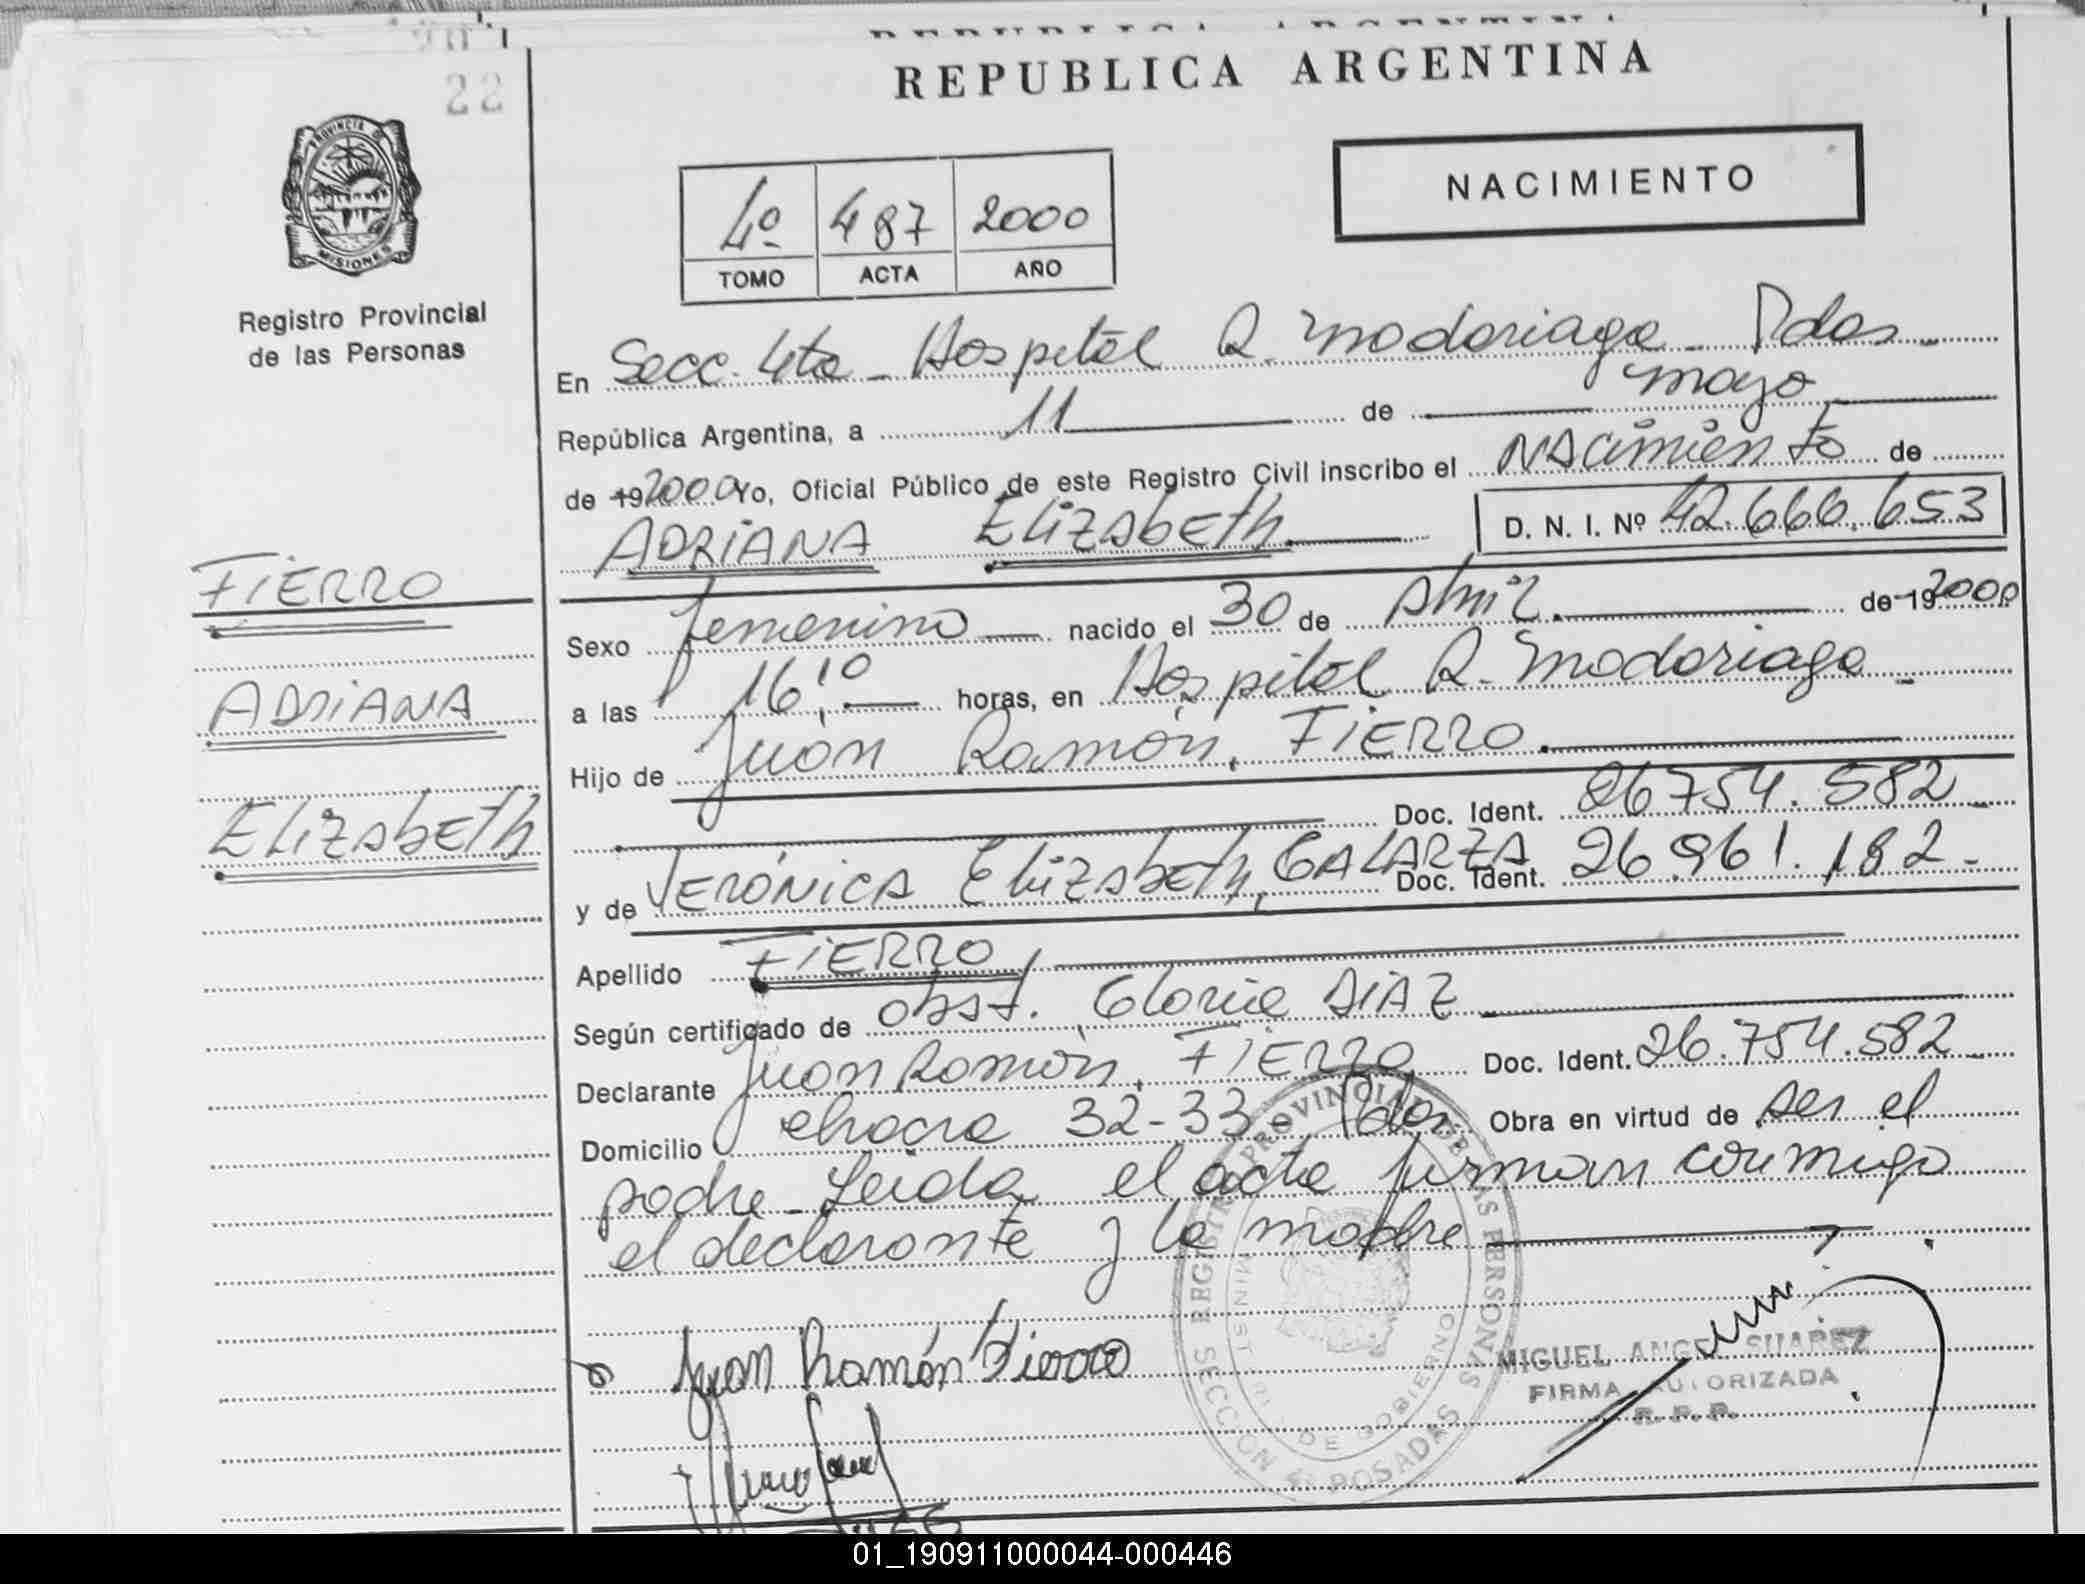 REPUBLICA ARGENTINA
22
PROVINCIA DE
MISIONES
Registro Provincial
de las Personas
NACIMIENTO
4º 487 2000
TOMO ACTA AÑO
En Secc. 4ta - Hospital R. Madariaga - Pdas -
República Argentina, a 11 de mayo
de 19 2000 Yo, Oficial Público de este Registro Civil inscribo el NACimiento de
ADRIANA ELIZAbETh. D. N. I. Nº 42.666.653
FiERRO
ADRiANA
ELIZAbETh
Sexo femenino nacido el 30 de Abril. de 19 2000
a las 16,10 horas, en Hospital R. Madariaga -
Hijo de Juan Ramón, FiERRO.
Doc. Ident. 26.754.582 -
y de VERÓNiCA ELIZAbETh, GALARZA Doc. Ident. 26.961.182 -
Apellido FiERRO,
Según certificado de obst. Gloria DiAZ
Declarante Juan Ramón, FiERRO Doc. Ident. 26.754.582 -
Domicilio chacra 32-33 - Pdas. Obra en virtud de ser el
padre - Leida el acta firman conmigo
el declarante y la madre
Juan Ramón Fierro
REGISTRO PROVINCIAL DE LAS PERSONAS
SECCION 4ª POSADAS
MINISTERIO DE GOBIERNO
MIGUEL ANGEL SUAREZ
FIRMA AUTORIZADA
R. P. P.
01_190911000044-000446